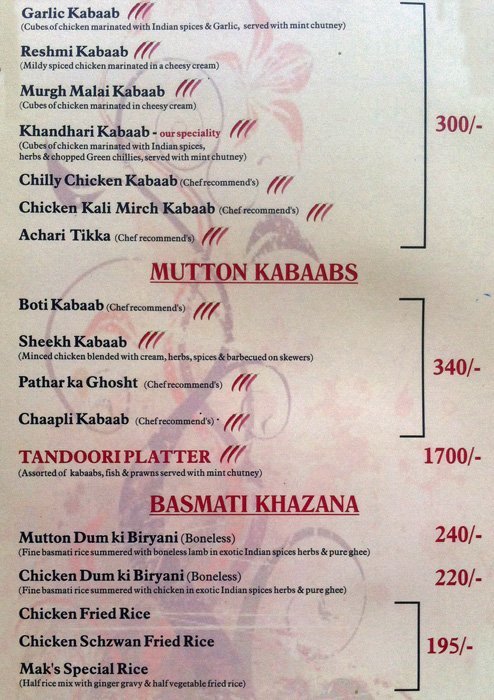 Garlic Kabaab
(Cubes of chicken marinated with Indian spices & Garlic, served with mint chutney)
Reshmi Kabaab
(Mildy spiced chicken marinated in a cheesy cream)
Murgh Malai Kabaab
(Cubes of chicken marinated in cheesy cream)
Khandhari Kabaab - our speciality
(Cubes of chicken marinated with Indian spices,
herbs & chopped Green chillies, served with mint chutney)
300/-
Chilly Chicken Kabaab (Chef recommend's)
Chicken Kali Mirch Kabaab (Chef recommend's)
Achari Tikka (Chef recommend's)
MUTTON KABAABS
Boti Kabaab (Chef recommend's)
Sheekh Kabaab
(Minced chicken blended with cream, herbs, spices & barbecued on skewers)
340/-
Pathar ka Ghosht (Chef recommend's)
Chaapli Kabaab (Chef recommend's)
TANDOORI PLATTER 1700/-
(Assorted of kabaabs, fish & prawns served with mint chutney)
BASMATI KHAZANA
Mutton Dum ki Biryani (Boneless) 240/-
(Fine basmati rice summered with boneless lamb in exotic Indian spices herbs & pure ghee)
Chicken Dum ki Biryani (Boneless) 220/-
(Fine basmati rice summered with chicken in exotic Indian spices herbs & pure ghee)
Chicken Fried Rice
Chicken Schzwan Fried Rice 195/-
Mak's Special Rice
(Half rice mix with ginger gravy & half vegetable fried rice)